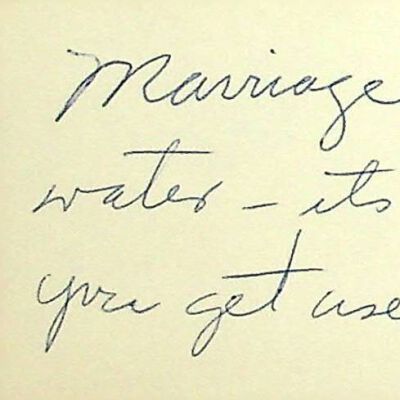 Marriage
water - its
you get use